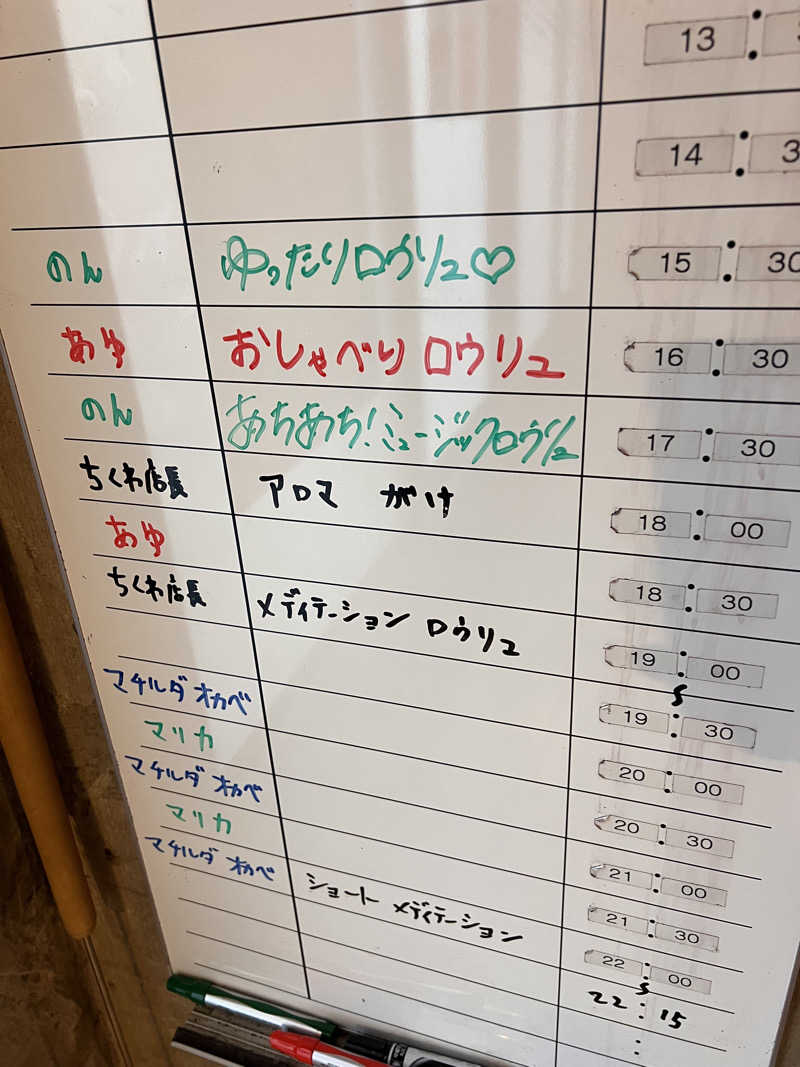 13 :
14 : 3
のん ゆったりロウリュ♡ 15 : 30
あゆ おしゃべり ロウリュ 16 : 30
のん あちあち!ミュージックロウリュ 17 : 30
ちくわ店長 アロマ がけ 18 : 00
あゆ 18 : 30
ちくわ店長 メディテーション ロウリュ 19 : 00
〜
19 : 30
マチルダ オカベ 20 : 00
マリカ 20 : 30
マチルダ オカベ 21 : 00
マリカ 21 : 30
マチルダ オカベ ショート メディテーション 22 : 00
〜
22 : 15
: